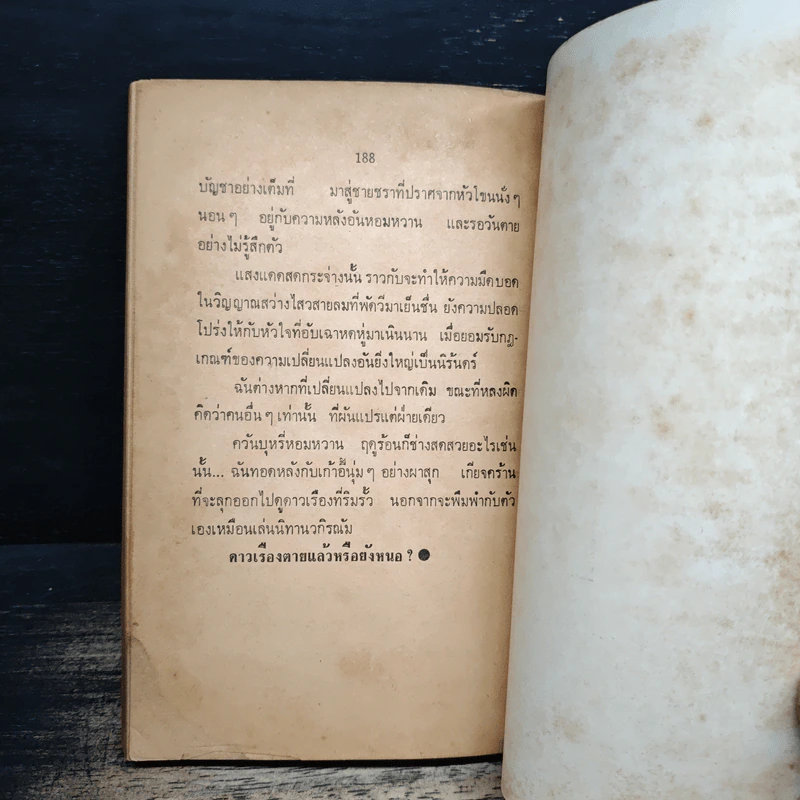 188
บัญชาอย่างเต็มที่ มาสู่ชายชราที่ปราศจากหัวโขนนั่งๆ
นอนๆ อยู่กับความหลังอันหอมหวาน และรอวันตาย
อย่างไม่รู้สึกตัว
แสงแดดสดกระจ่างนั้น ราวกับจะทำให้ความมืดบอด
ในวิญญาณสว่างไสวสายลมที่พัดวีมาเย็นชื่น ยังความปลอด
โปร่งให้กับหัวใจที่อับเฉาหดหู่มาเนินนาน เมื่อยอมรับกฎ-
เกณฑ์ของความเปลี่ยนแปลงอันยิ่งใหญ่เป็นนิรันดร์
ฉันต่างหากที่เปลี่ยนแปลงไปจากเดิม ขณะที่หลงผิด
คิดว่าคนอื่นๆ เท่านั้น ที่ผันแปรแต่ฝ่ายเดียว
ควันบุหรี่หอมหวาน ฤดูร้อนก็ช่างสดสวยอะไรเช่น
นั้น... ฉันทอดหลังกับเก้าอี้นุ่มๆ อย่างผาสุก เกียจคร้าน
ที่จะลุกออกไปดูดาวเรืองที่ริมรั้ว นอกจากจะพึมพำกับตัว
เองเหมือนเล่นนิทานวกิรณัม
ดาวเรืองตายแล้วหรือยังหนอ ?